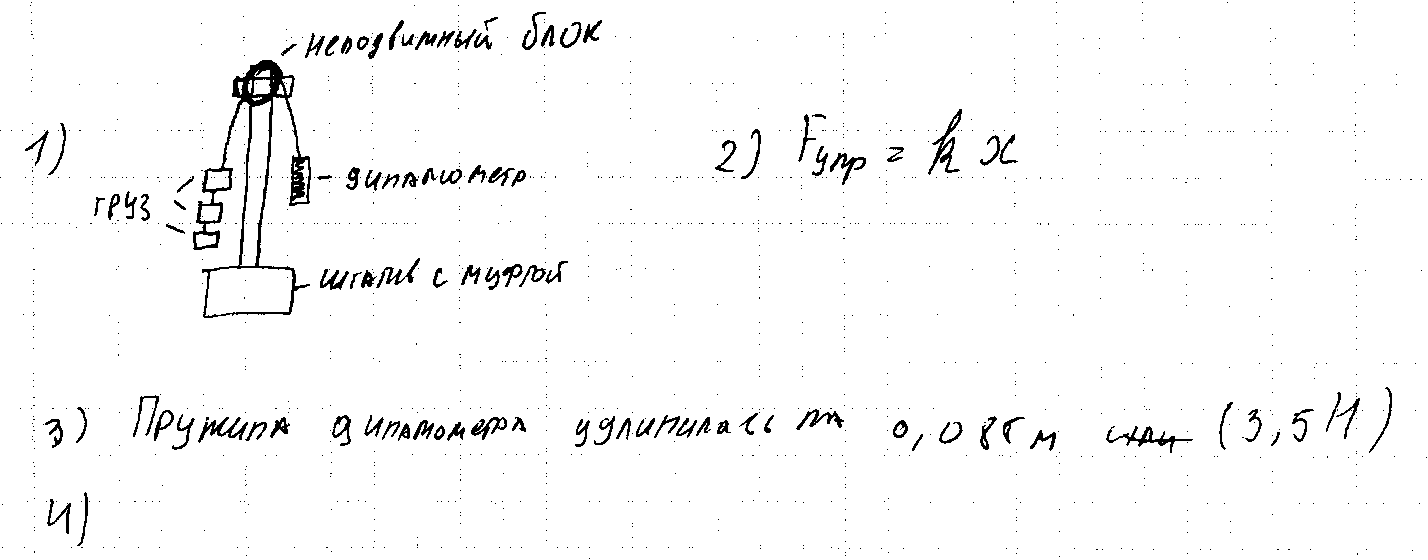 неподвижный блок
1)
груз
динамометр
штатив с муфтой
2) Fупр = k x
3) Пружина динамометра удлинилась на 0,085м или (3,5Н)
4)